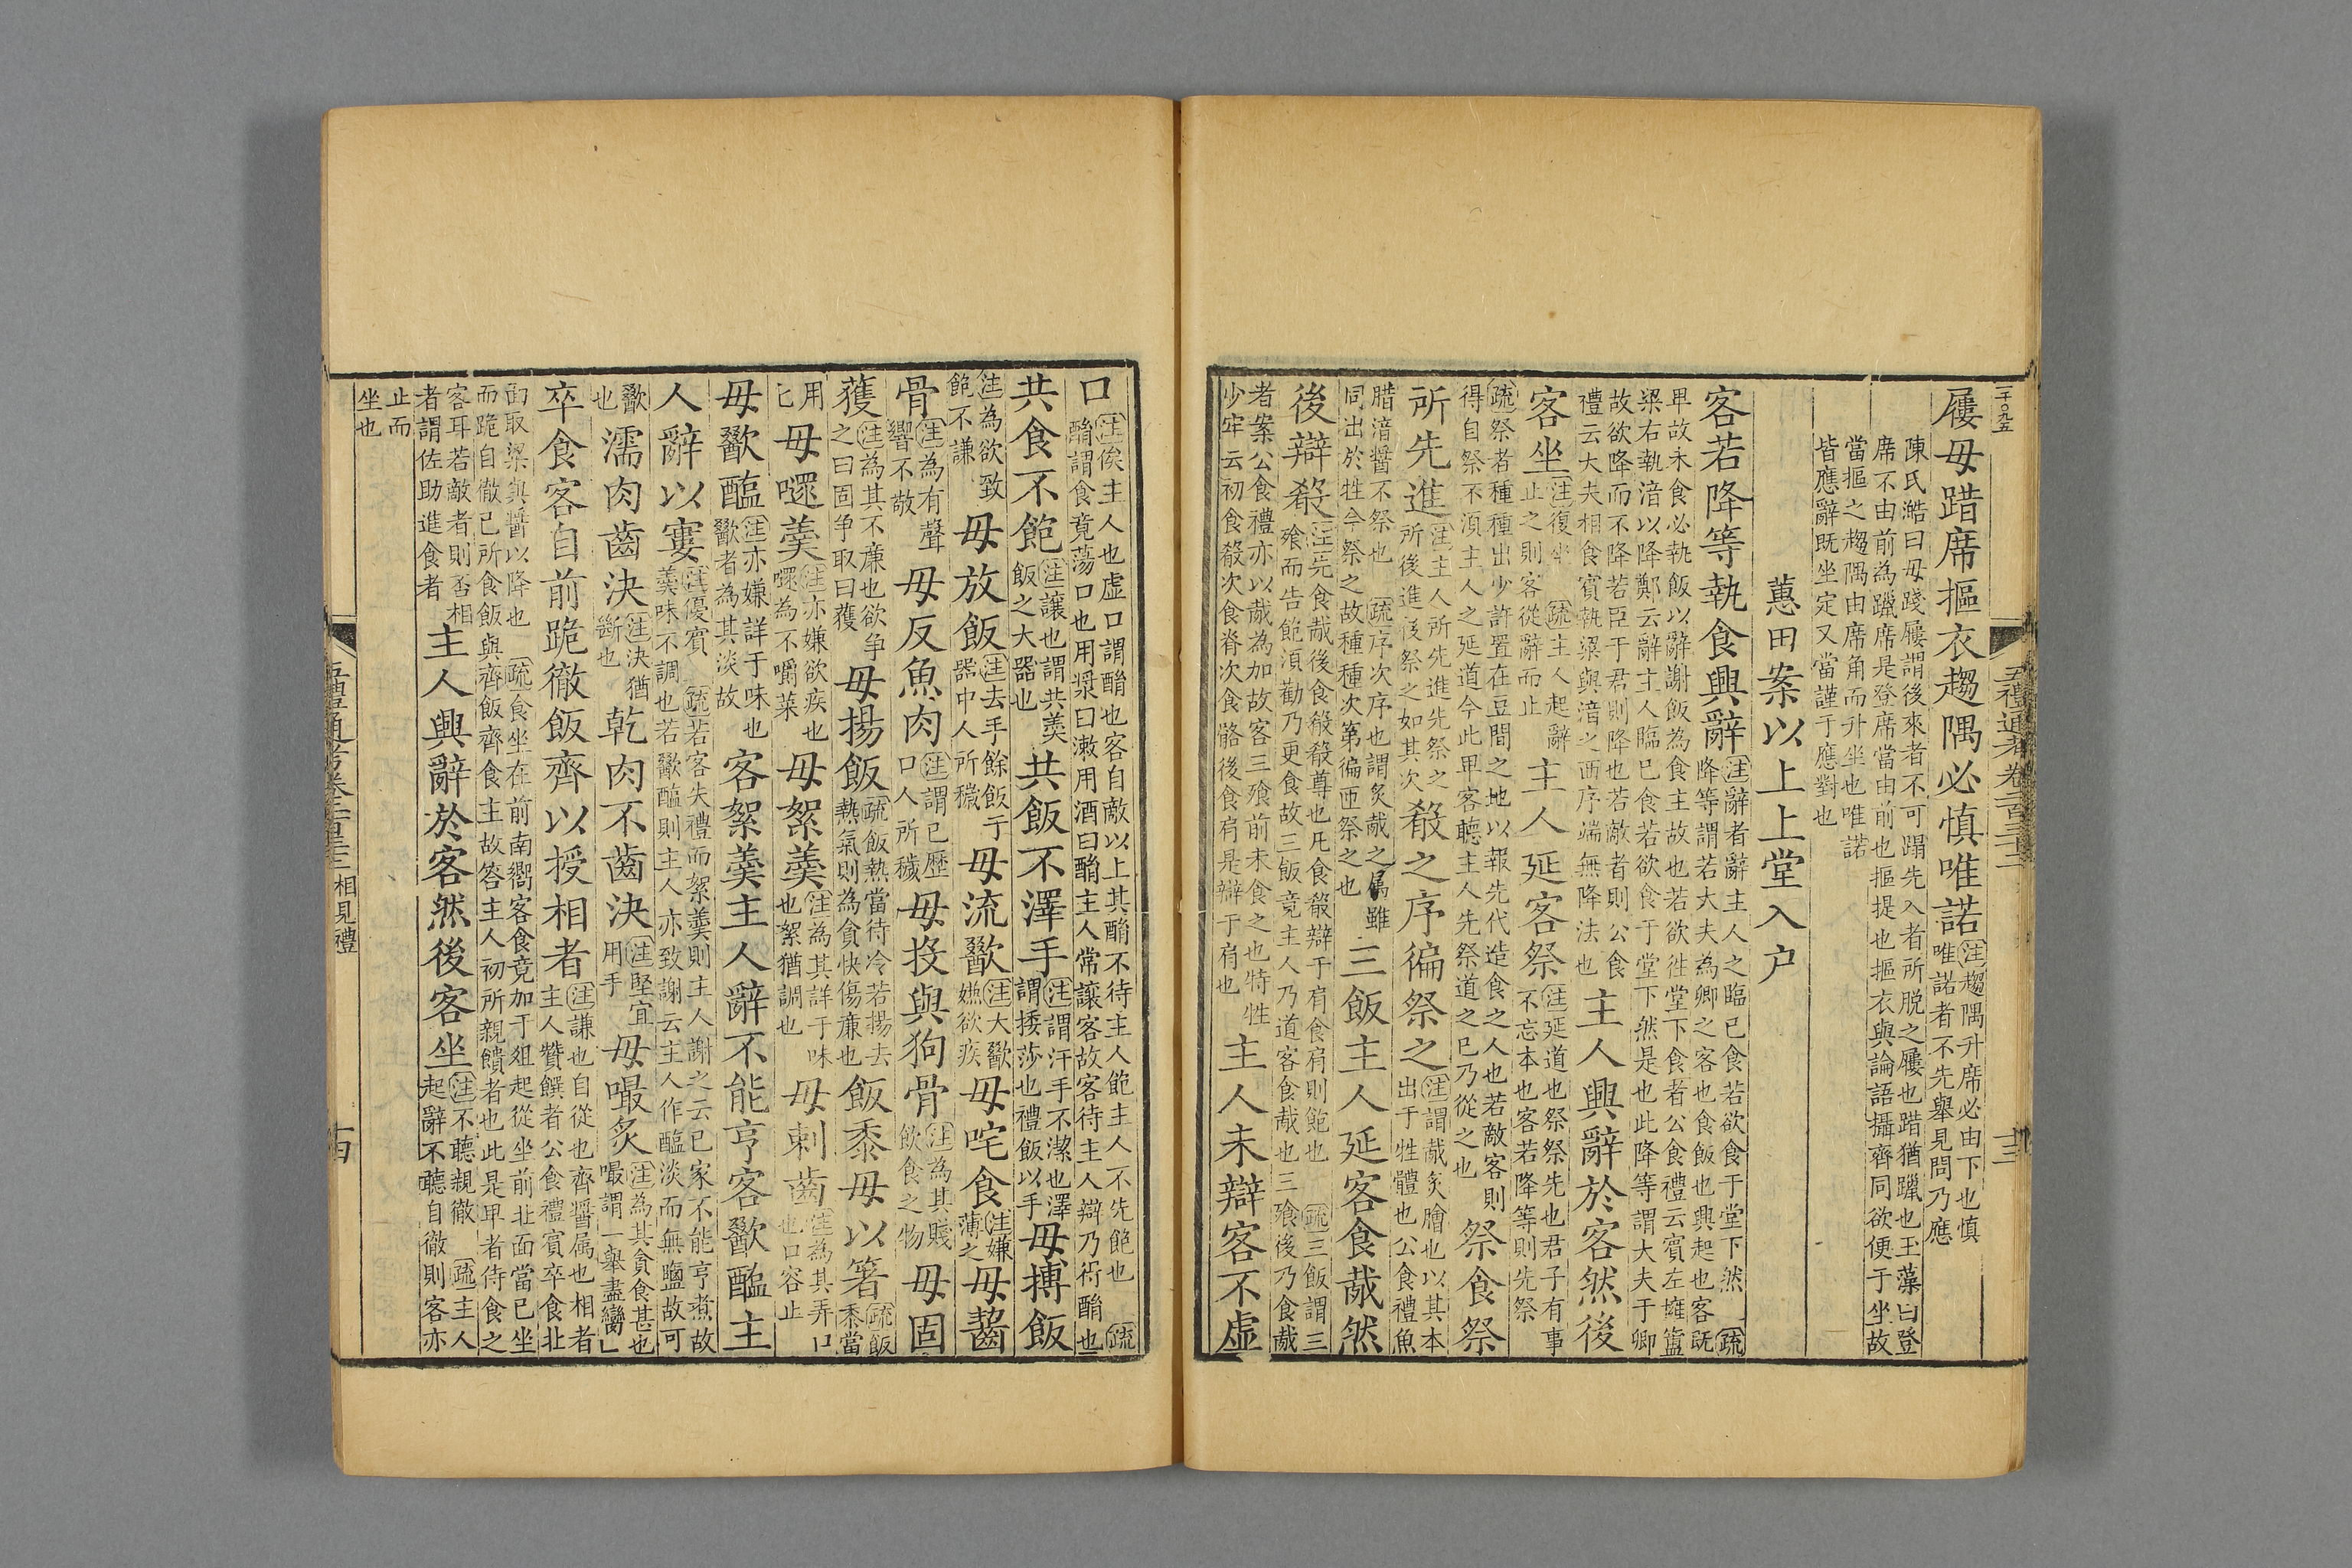 二千○九五
五禮通考卷二百三十二
十三
屨毋踖席摳衣趨隅必慎唯諾
注趨隅升席必由下也慎
唯諾者不先舉見問乃應
陳氏澔曰毋踐屨謂後來者不可蹋先入者所脱之屨也踖猶躐也玉藻曰登
席不由前為躐席是登席當由前也摳提也摳衣與論語攝齊同欲便于坐故
當摳之趨隅由席角而升坐也唯諾
皆應辭既坐定又當謹于應對也
蕙田案以上上堂入户
客若降等執食興辭
注辭者辭主人之臨已食若欲食于堂下然 疏
降等謂若大夫為卿之客也食飯也興起也客既
卑故未食必執飯以辭謝飯為食主故也若欲往堂下食者公食禮云賓左擁簠
粱右執湆以降鄭云辭主人臨已食若欲食于堂下然是也此降等謂大夫于卿
故欲降而不降若臣于君則降也若敵者則公食
禮云大夫相食賓執粱與湆之西序端無降法也
主人興辭於客然後
客坐
注復坐 疏主人起辭
止之則客從辭而止
主人延客祭
注延道也祭祭先也君子有事
不忘本也客若降等則先祭
疏祭者種種出少許置在豆間之地以報先代造食之人也若敵客則
得自祭不湏主人之延道今此卑客聽主人先祭道之已乃從之也
祭食祭
所先進
注主人所先進先祭之
所後進後祭之如其次
殽之序徧祭之
注謂胾炙膾也以其本
出于牲體也公食禮魚
腊湆醬不祭也 疏序次序也謂炙胾之属雖
同出於牲今祭之故種種次第徧匝祭之也
三飯主人延客食胾然
後辯殽
注先食胾後食殽殽尊也凡食殽辯于肩食肩則飽也 疏三飯謂三
飱而告飽湏勸乃更食故三飯竟主人乃道客食胾也三飱後乃食胾
者案公食禮亦以胾為加故客三飱前未食之也特牲
少牢云初食殽次食脊次食骼後食肩是辯于肩也
主人未辯客不虚
口
注俟主人也虚口謂酳也客自敵以上其酳不待主人飽主人不先飽也 疏
酳謂食竟蕩口也用漿曰漱用酒曰酳主人常讓客故客待主人辯乃術酳也
共食不飽
注讓也謂共羹
飯之大器也
共飯不澤手
注謂汗手不潔也澤
謂挼莎也禮飯以手
毋搏飯
注為欲致
飽不謙
毋放飯
注去手餘飯于
器中人所穢
毋流歠
注大歠
嫌欲疾
毋咤食
注嫌
薄之
毋齧
骨
注為有聲
響不敬
毋反魚肉
注謂已歷
口人所穢
毋投與狗骨
注為其賤
飲食之物
毋固
獲
注為其不廉也欲争
之曰固争取曰獲
毋揚飯
疏飯熱當待冷若揚去
熱氣則為貪快傷廉也
飯黍毋以箸
疏飯
黍當
用
匕
毋嚃羹
注亦嫌欲疾也
嚃為不嚼菜
毋絮羹
注為其詳于味
也絮猶調也
毋刺齒
注為其弄口
也口容止
毋歠醢
注亦嫌詳于味也
歠者為其淡故
客絮羹主人辭不能亨客歠醢主
人辭以窶
注優賓 疏若客失禮而絮羹則主人謝之云已家不能亨煮故
羹味不調也若歠醢則主人亦致謝云主人作醢淡而無鹽故可
歠
也
濡肉齒決
注決猶
斷也
乾肉不齒決
注堅宜
用手
毋嘬炙
注為其貪食甚也
嘬謂一舉盡臠
卒食客自前跪徹飯齊以授相者
注謙也自從也齊醬属也相者
主人贊饌者公食禮賓卒食北
面取粱與醬以降也 疏食坐在前南嚮客食竟加于俎起從坐前北面當已坐
而跪自徹已所食飯與齊飯齊食主故答主人初所親饋者也此是卑者侍食之
客耳若敵者則否相
者謂佐助進食者
主人興辭於客然後客坐
注不聽親徹 疏主人
起辭不聽自徹則客亦
止而
坐也
五禮通考卷二百三十二
相見禮
十四